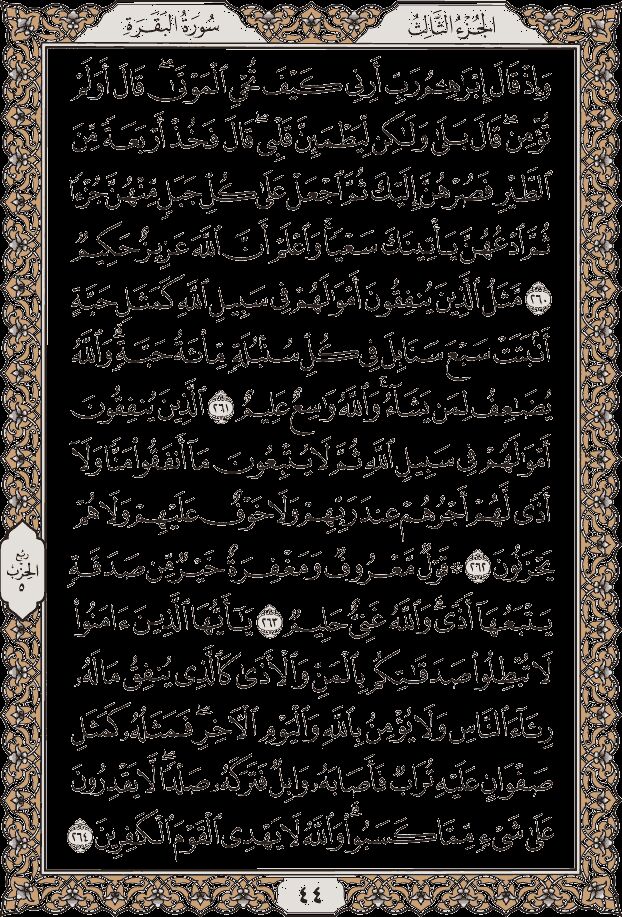 الجزء الثالث
سورة البقرة
وَإِذْ قَالَ إِبْرَٰهِـۧمُ رَبِّ أَرِنِي كَيْفَ تُحْيِ ٱلْمَوْتَىٰۖ قَالَ أَوَلَمْ
تُؤْمِنۖ قَالَ بَلَىٰ وَلَٰكِن لِّيَطْمَئِنَّ قَلْبِيۖ قَالَ فَخُذْ أَرْبَعَةً مِّنَ
ٱلطَّيْرِ فَصُرْهُنَّ إِلَيْكَ ثُمَّ ٱجْعَلْ عَلَىٰ كُلِّ جَبَلٍ مِّنْهُنَّ جُزْءًا
ثُمَّ ٱدْعُهُنَّ يَأْتِينَكَ سَعْيًاۚ وَٱعْلَمْ أَنَّ ٱللَّهَ عَزِيزٌ حَكِيمٌ
٢٦٠ مَّثَلُ ٱلَّذِينَ يُنفِقُونَ أَمْوَٰلَهُمْ فِي سَبِيلِ ٱللَّهِ كَمَثَلِ حَبَّةٍ
أَنۢبَتَتْ سَبْعَ سَنَابِلَ فِي كُلِّ سُنۢبُلَةٍ مِّا۟ئَةُ حَبَّةٍۗ وَٱللَّهُ
يُضَٰعِفُ لِمَن يَشَآءُۗ وَٱللَّهُ وَٰسِعٌ عَلِيمٌ ٢٦١ ٱلَّذِينَ يُنفِقُونَ
أَمْوَٰلَهُمْ فِي سَبِيلِ ٱللَّهِ ثُمَّ لَا يُتْبِعُونَ مَآ أَنفَقُوا۟ مَنًّا وَلَآ
أَذًىۙ لَّهُمْ أَجْرُهُمْ عِندَ رَبِّهِمْ وَلَا خَوْفٌ عَلَيْهِمْ وَلَا هُمْ
يَحْزَنُونَ ٢٦٢ ۞ قَوْلٌ مَّعْرُوفٌ وَمَغْفِرَةٌ خَيْرٌ مِّن صَدَقَةٍ
يَتْبَعُهَآ أَذًىۗ وَٱللَّهُ غَنِيٌّ حَلِيمٌ ٢٦٣ يَٰٓأَيُّهَا ٱلَّذِينَ ءَامَنُوا۟
لَا تُبْطِلُوا۟ صَدَقَٰتِكُم بِٱلْمَنِّ وَٱلْأَذَىٰ كَٱلَّذِي يُنفِقُ مَالَهُۥ
رِئَآءَ ٱلنَّاسِ وَلَا يُؤْمِنُ بِٱللَّهِ وَٱلْيَوْمِ ٱلْءَاخِرِۖ فَمَثَلُهُۥ كَمَثَلِ
صَفْوَانٍ عَلَيْهِ تُرَابٌ فَأَصَابَهُۥ وَابِلٌ فَتَرَكَهُۥ صَلْدًاۖ لَّا يَقْدِرُونَ
عَلَىٰ شَيْءٍ مِّمَّا كَسَبُوا۟ۗ وَٱللَّهُ لَا يَهْدِي ٱلْقَوْمَ ٱلْكَٰفِرِينَ ٢٦٤
ربع
الحزب
٥
٤٤